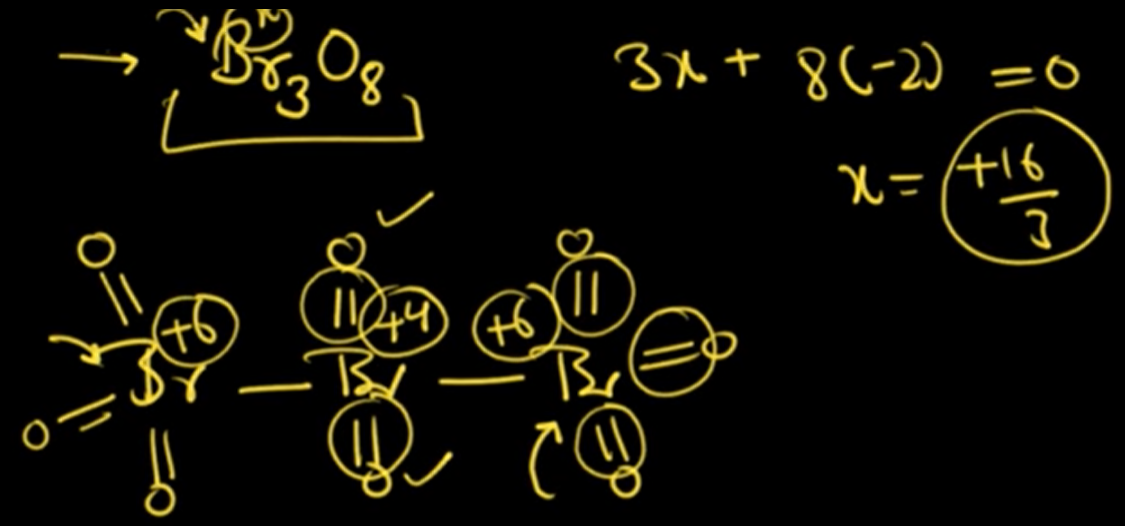 → Br₃O₈ 3x + 8(-2) = 0
x = +16/3
O O O
+6 +4 +6
Br — Br — Br = O
O =
O O O